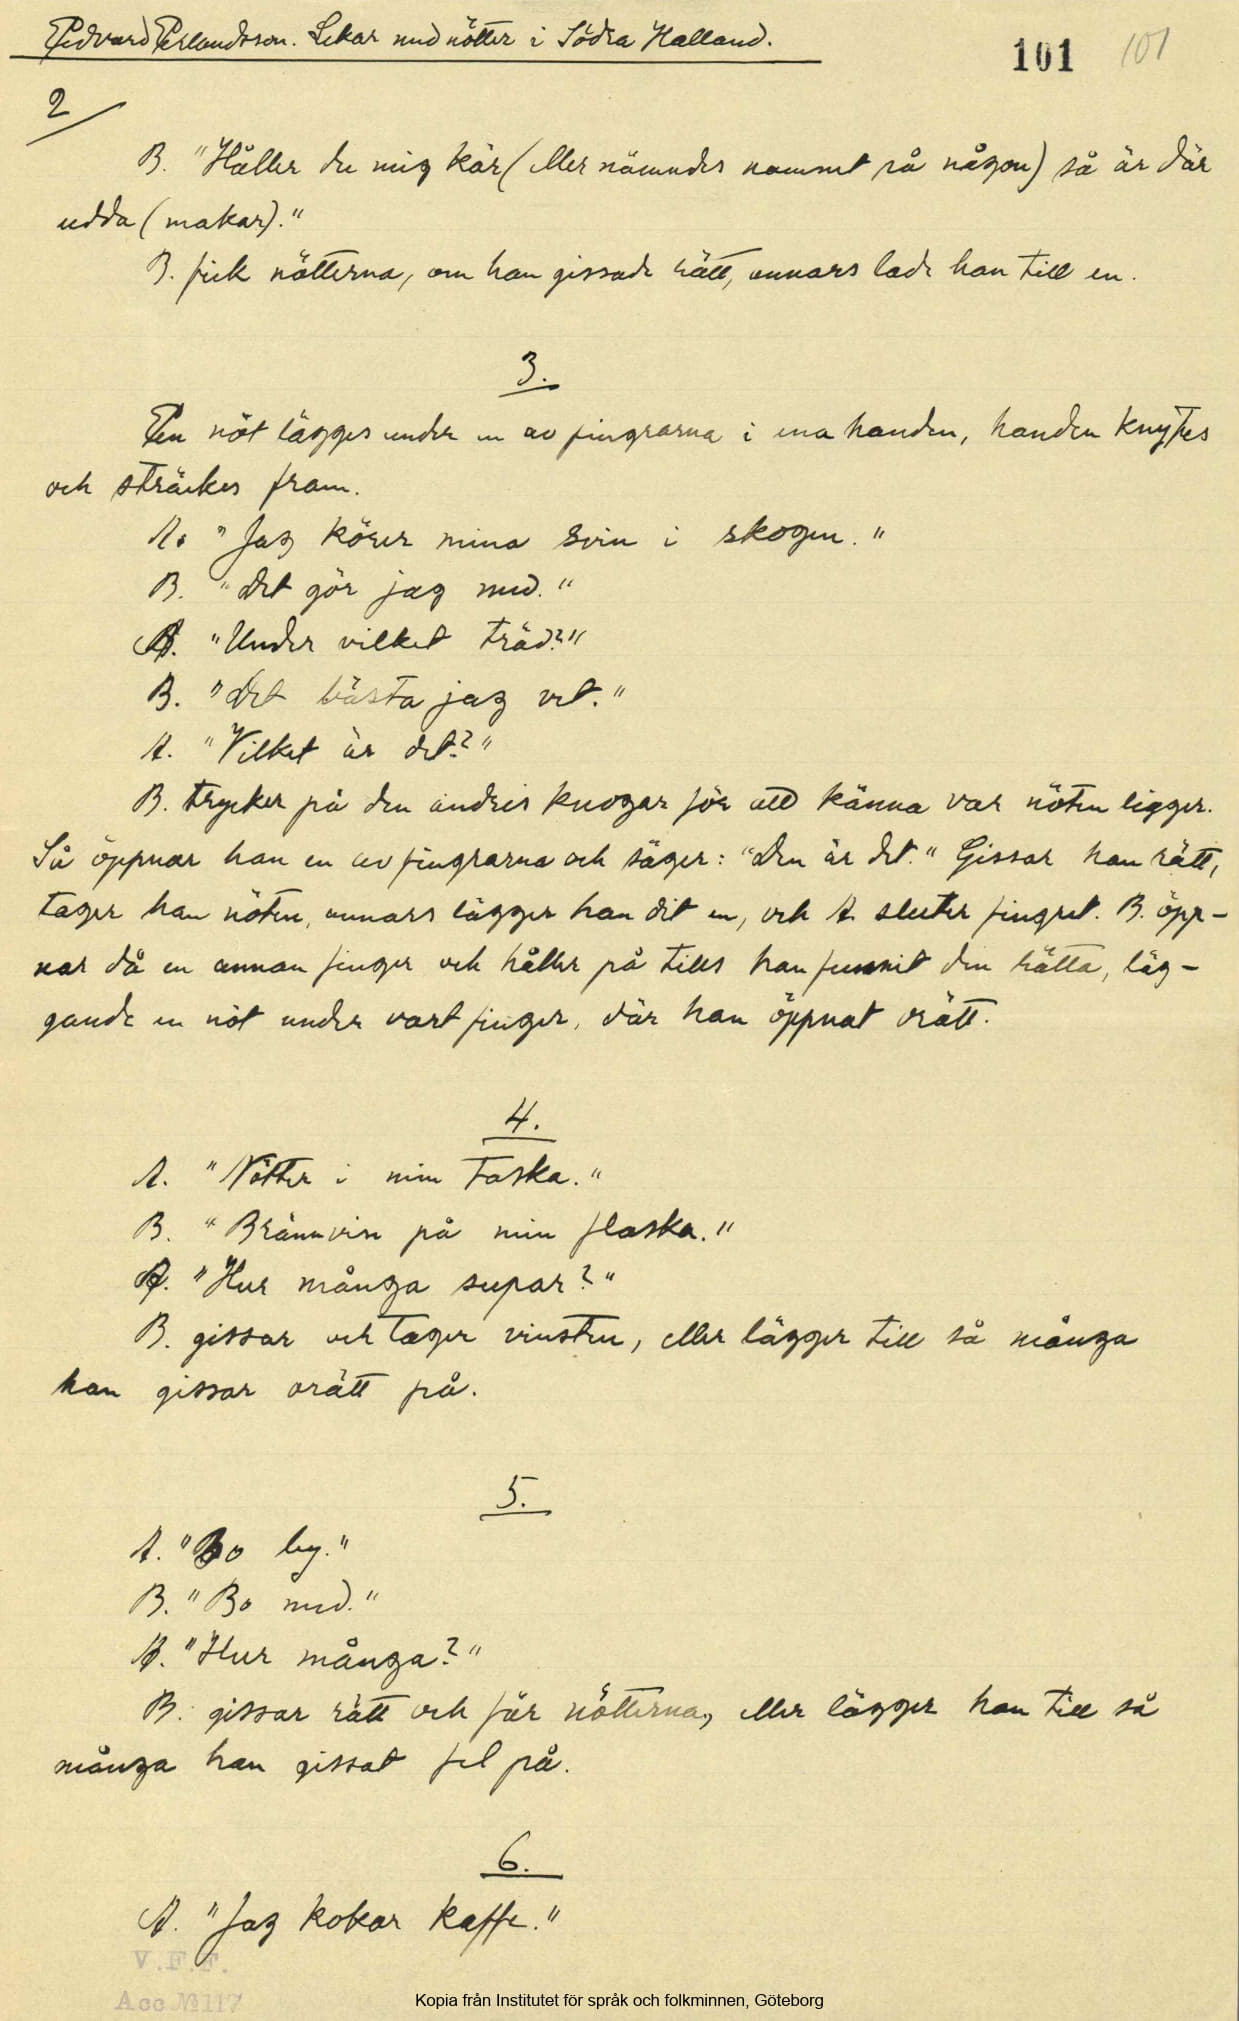 Edvard Erlandsson. Lekar med nötter i Södra Halland.
101 101
2
B. "Håller du mig kär (eller nämndes namnet på någon) så är där
udda (makar)."
B. fick nötterna, om han gissade rätt, annars lade han till en.
3.
En nöt lägges under en av fingrarna i ena handen, handen knytes
och sträckes fram.
A. "Jag körer mina svin i skogen."
B. "Det gör jag med."
A. "Under vilket träd?"
B. "Det bästa jag vet."
A. "Vilket är det?"
B. trycker på den andres knogar för att känna var nöten ligger.
Så öppnar han en av fingrarna och säger: "Den är det." Gissar han rätt,
tager han nöten, annars lägger han dit en, och A sluter fingret. B. öpp-
nar då en annan finger och håller på tills han funnit den rätta, läg-
gande en nöt under vart finger, där han öppnat orätt.
4.
A. "Nötter i min taska."
B. "Brännvin på min flaska."
A. "Hur många supar?"
B. gissar och tager vinsten, eller lägger till så många
han gissar orätt på.
5.
A. "Bo by."
B. "Bo med."
A. "Hur många?"
B. gissar rätt och får nötterna, eller lägger han till så
många han gissat fel på.
6.
A. "Jag kokar kaffe."
V.F.F.
Acc № 117
Kopia från Institutet för språk och folkminnen, Göteborg